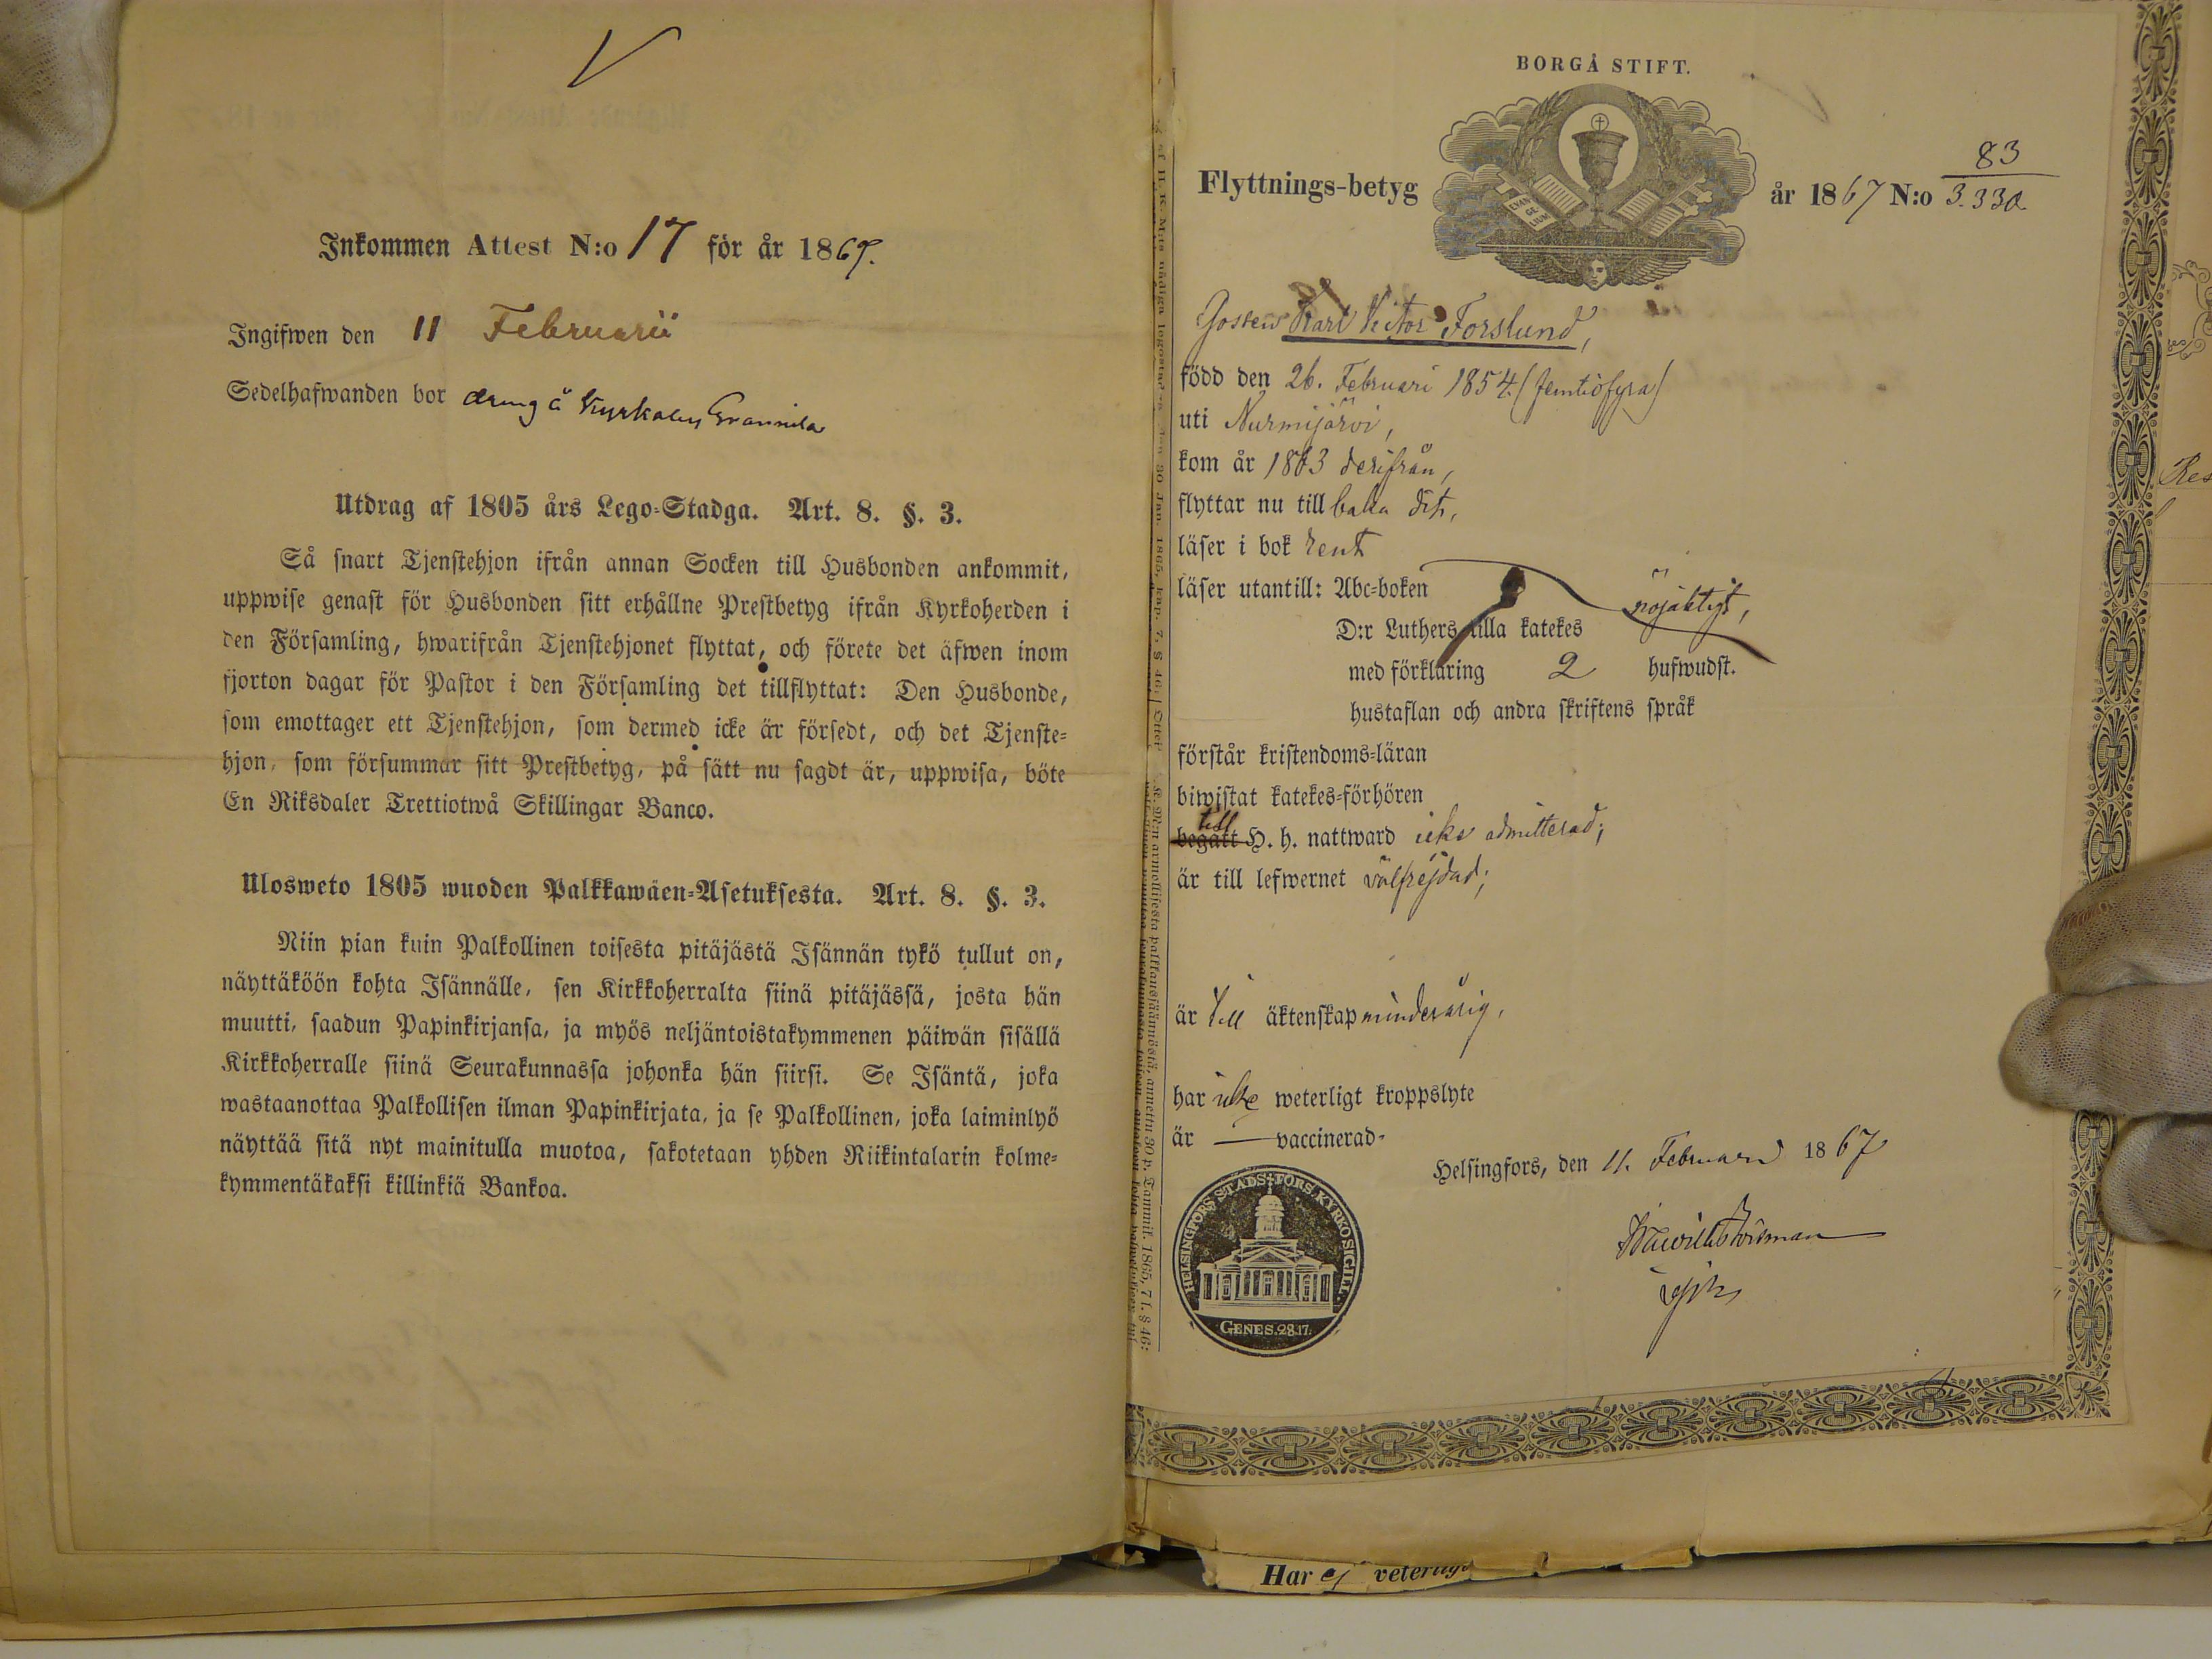 Inkommen Attest N:o 17 för år 1867.
Ingifwen den 11 Februarii
Sedelhafwanden bor dreng å
Utdrag af 1805 års Lego-Stadga. Art. 8. §. 3.
Så snart Tjenstehjon ifrån annan Socken till Husbonden ankommit,
uppwise genast för Husbonden sitt erhållne Prestbetyg ifrån Kyrkoherden i
den Församling, hwarifrån Tjenstehjonet flyttat, och förete det äfwen inom
fjorton dagar för Pastor i den Församling det tillflyttat: Den Husbonde,
som emottager ett Tjenstehjon, som dermed icke är försedt, och det Tjenste-
hjon, som försummar sitt Prestbetyg, på sätt nu sagdt är, uppwisa, böte
En Riksdaler Trettiotwå Skillingar Banco.
Ulosweto 1805 wuoden Palkkawäen-Asetuksesta. Art. 8. §. 3.
Niin pian kuin Palkollinen toisesta pitäjästä Isännän tykö tullut on,
näyttäköön kohta Isännälle, sen Kirkkoherralta siinä pitäjässä, josta hän
muutti, saadun Papinkirjansa, ja myös neljäntoistakymmenen päiwän sisällä
Kirkkoherralle siinä Seurakunnassa johonka hän siirsi. Se Isäntä, joka
wastaanottaa Palkollisen ilman Papinkirjata, ja se Palkollinen, joka laiminlyö
näyttää sitä nyt mainitulla muotoa, sakotetaan yhden Riikintalarin kolme-
kymmentäkaksi killinkiä Bankoa.
BORGÅ STIFT.
EVAN
GE
LIUM
Flyttnings-betyg år 1867 N:o 83
3.330.
Gossen Karl Victor Forslund,
född den 26. Februari 1854. (femtiofyra)
uti Nurmijärvi,
kom år 1863 derifrån,
flyttar nu till baka dit,
läser i bok rent
läser utantill: Abc-boken
nöjaktigt,
D:r Luthers lilla katekes
med förklaring 2 hufwudst.
hustaflan och andra skriftens språk
förstår kristendoms-läran
biwistat katekes-förhören
till
begått H. h. nattward icke admitterad;
är till lefwernet välfrejdad;
är till äktenskap minderårig,
har icke weterligt kroppslyte
är — vaccinerad.
Helsingfors, den 11. Februari 1867
HELSINGFORS STADS FÖRS. KYRKO SIGILL.
GENES. 28.17.
Har ej veterligt